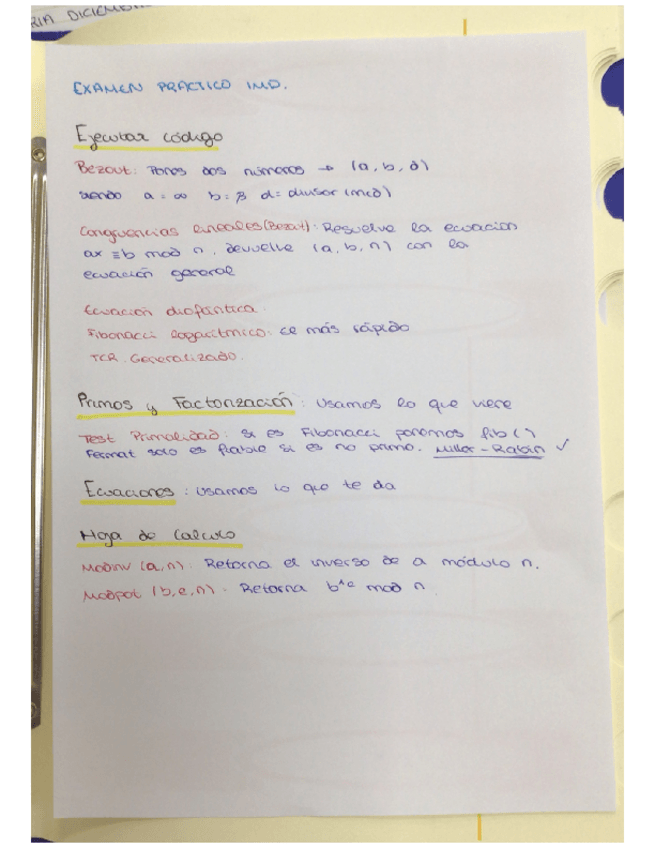 RIA DICIEMB
EXAMEN PRÁCTICO IMD.
Ejecutar código
Bezout: Pones dos números → (a, b, d)
siendo a = ∞ b = β d = divisor (mcd)
Congruencias lineales (Bezout): Resuelve la ecuación
ax ≡ b mod n, devuelve (a, b, n) con la
ecuación general
Ecuación diofántica.
Fibonacci logarítmico: es más rápido
TCR Generalizado.
Primos y Factorización: Usamos lo que viene
Test Primalidad: Si es Fibonacci ponemos fib()
Fermat solo es fiable si es no primo. Miller-Rabin ✓
Ecuaciones: usamos lo que te da
Hoja de Calculo
ModInv (a,n): Retorna el inverso de a módulo n.
ModPot (b,e,n). Retorna b^e mod n